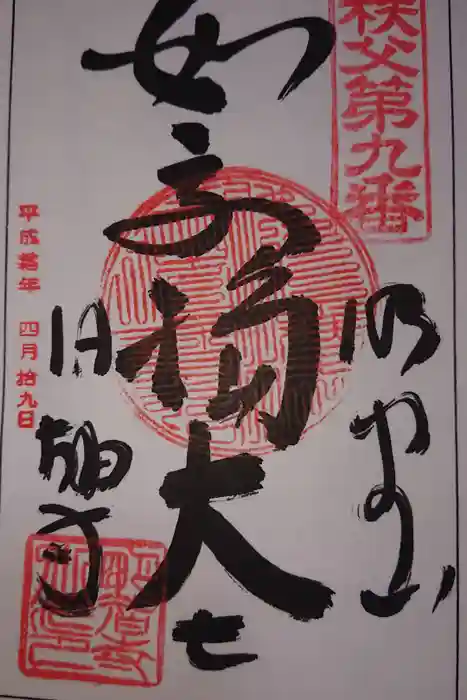 秩父第九番
明星山
如意輪大士
明智寺
平成 年 四月 拾九日